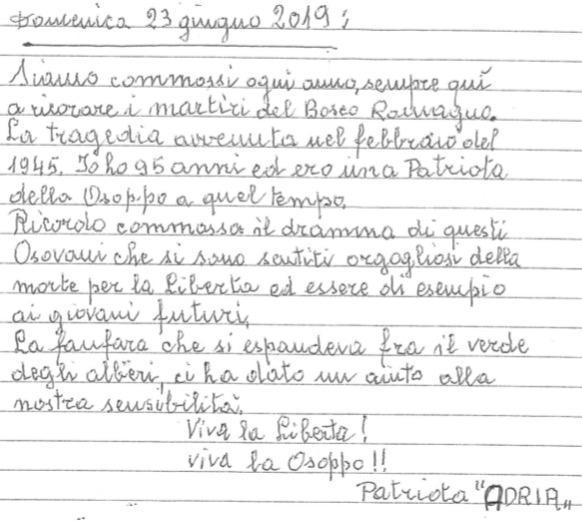 Domenica 23 giugno 2019:
Siamo commossi ogni anno, sempre qui
a ricorare i martiri del Bosco Romagno.
La tragedia avvenuta nel febbraio del
1945. Io ho 95 anni ed ero una Patriota
della Osoppo a quel tempo.
Ricordo commossa il dramma di questi
Osovani che si sono sentiti orgogliosi della
morte per la Libertà ed essere di esempio
ai giovani futuri,
La fanfara che si espandeva fra il verde
degli alberi, ci ha dato un aiuto alla
nostra sensibilità.
Viva la Libertà!
viva la Osoppo!!
Patriota "ADRIA„